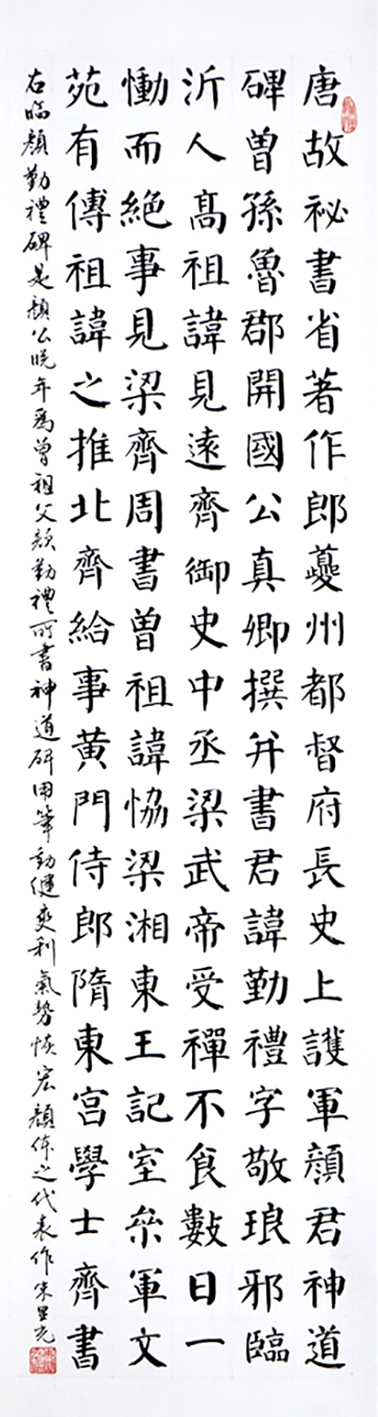 唐故祕書省著作郎夔州都督府長史上護軍顏君神道
碑曾孫魯郡開國公真卿撰并書君諱勤禮字敬琅邪臨
沂人高祖諱見遠齊御史中丞梁武帝受禪不食數日一
慟而絕事見梁齊周書曾祖諱恊梁湘東王記室叅軍文
苑有傳祖諱之推北齊給事黃門侍郎隋東宮學士齊書
右臨顏勤禮碑是顏公晚年為曾祖父顏勤禮所書神道碑用筆勁健爽利氣勢恢宏顏体之代表作